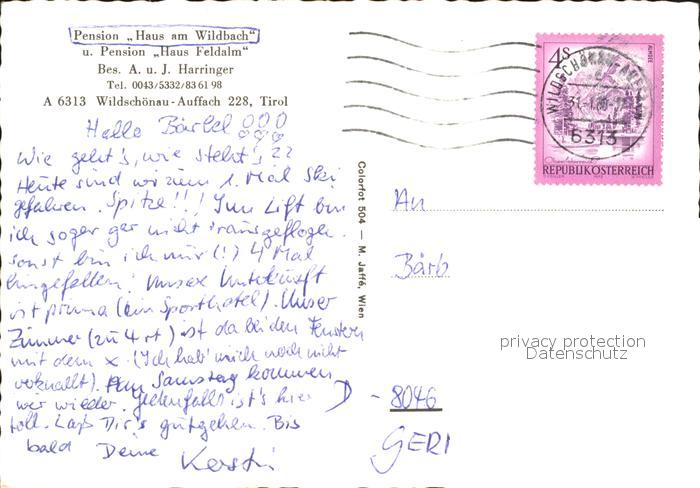 Pension „Haus am Wildbach"
u. Pension „Haus Feldalm"
Bes. A. u. J. Harringer
Tel. 0043/5332/83 61 98
A 6313 Wildschönau-Auffach 228, Tirol
Hallo Bärbel
Wie geht's, wie steht's ??
Heute sind wir zum 1. Mal Ski
gefahren. Spitze!!! Im Lift bin
ich sogar gar nicht rausgeflogen.
Sonst bin ich nur (!) 4 Mal
hingefallen! Unsere Unterkunft
ist prima (ein Sporthotel). Unser
Zimmer (zu 4rt) ist da bei den Fenstern
mit dem x. (Ich hab' mich noch nicht
verknallt). Am Samstag kommen
wir wieder. Jedenfalls ist's hier
toll. Laß Dir's gutgehen. Bis
bald Deine Kerstin
Colorfot 504 — M. Jaffé, Wien
4S
ALMSEE
REPUBLIK ÖSTERREICH
6313
An
Bärb
privacy protection
Datenschutz
D - 8046
GERI